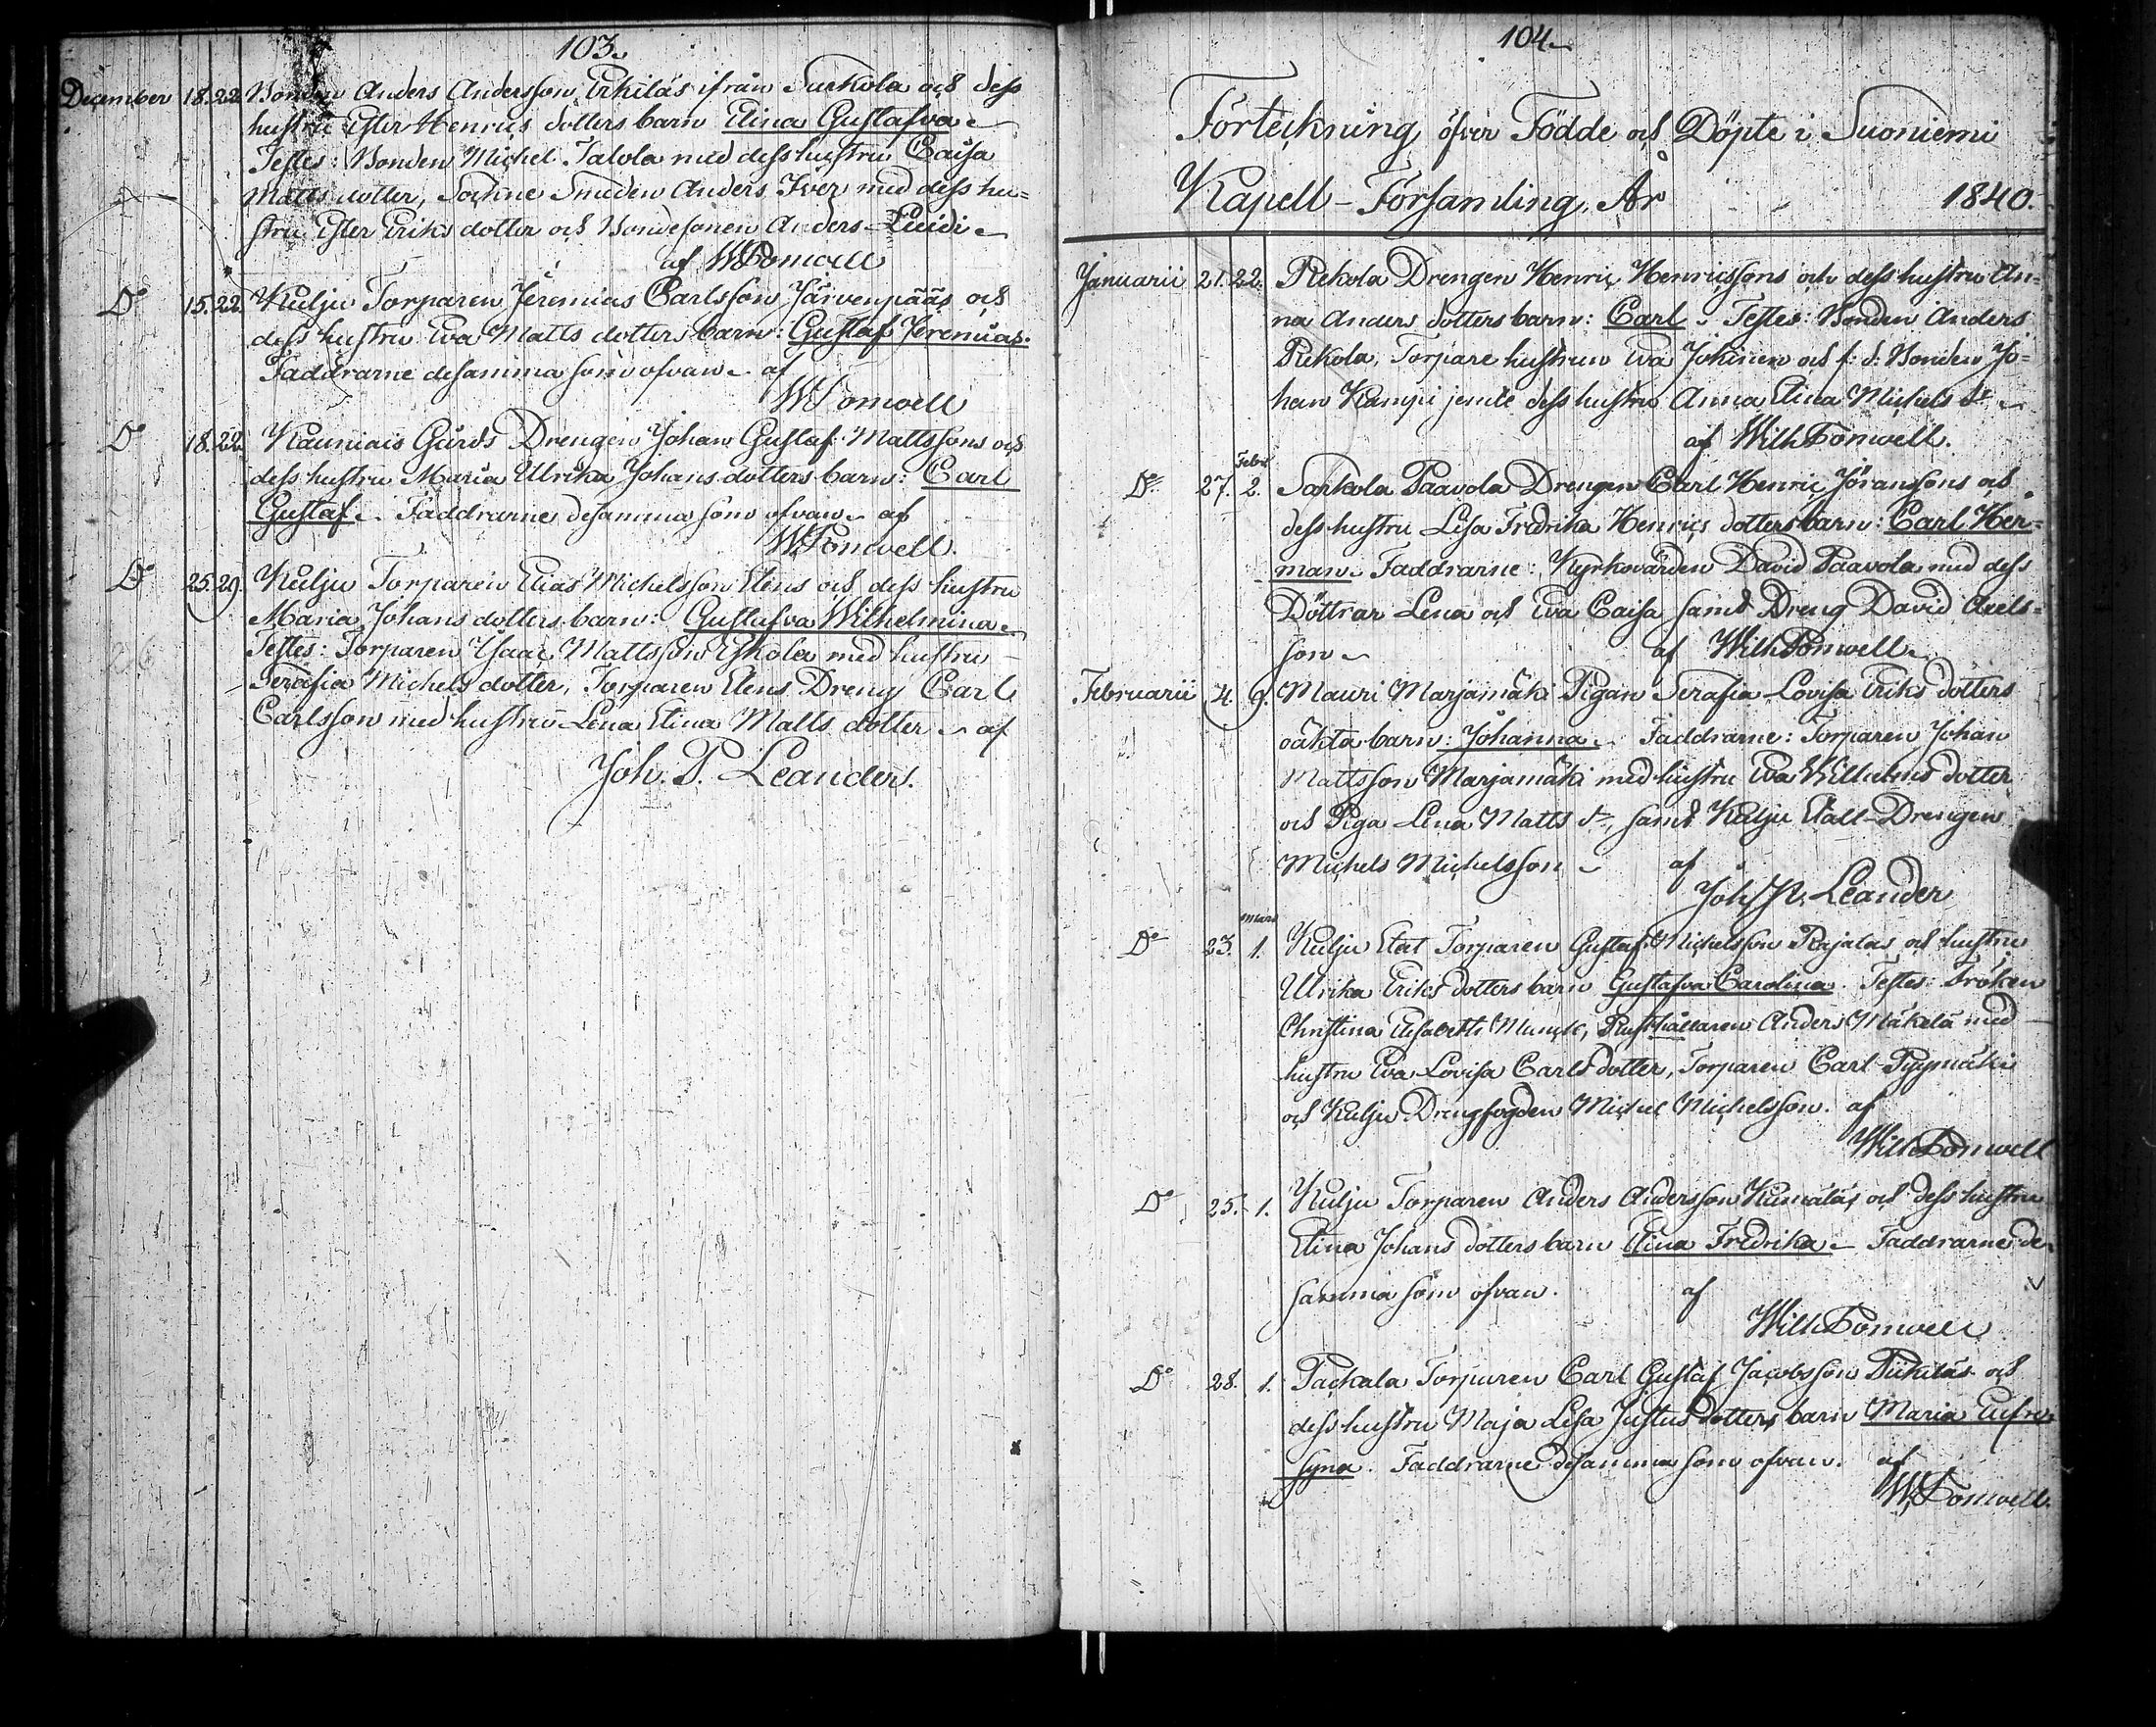 103.
December 18. 22. Bonden Anders Andersson Erkiläs ifrån Sarkola och dess
hustru Ester Henrics dotters barn Elina Gustafva
Testes: Bonden Michel Talola med dess hustru Caisa
Matts dotter, Sockne Smeden Anders Iver med dess hu=
stru Ester Eriks dotter och Bondesonen Anders
af W Ponwell
Do 15. 22. Kulju Torparen Jeremias Carlsson Järvenpääs och
dess hustru Eva Matts dotters barn: Gustaf Jeremias.
Faddrarne desamma som ofvan. af
W Ponwell
Do 18. 22. Kauniais Gårds Drengen Johan Gustaf Mattssons och
dess hustru Maria Ulrika Johans dotters barn: Carl
Gustaf. Faddrarne desamma som ofvan. af
W Ponwell.
Do 25. 29. Kulju Torparen Elias Michelsson Elens och dess hustru
Maria Johans dotters barn: Gustafva Wilhelmina
Testes: Torparen Isaac Mattsson Eskola med hustru
Serafia Michels dotter, Torparen Elens Dreng Carl
Carlsson med hustru Lena Elina Matts dotter af
Joh. P. Leanders.
104
Förteckning öfver Födde och Döpte i Suoniemi
Kapell-Församling, År 1840.
Januarii 21. 22. Rekola Drengen Henric Henricssons och dess hustru An=
na Anders dotters barn: Carl. Testes: Bonden Anders
Rekola, Torpare hustrun Eva Johinen och f: d: Bonden Jo=
han Kampi jemte dess hustru Anna Elina Michels dr
af Wilh Ponwell.
Febr.
Do 27. 2. Sarkola Paavola Drengen Carl Henric Göranssons och
dess hustru Lisa Fredrika Henrics dotters barn: Carl Her=
man. Faddrarne: Kyrkovärden David Paavola med dess
Döttrar Lena och Eva Caisa samt Dreng David Axels=
son af Wilh Ponwell
Februarii 4. 9. Mauri Marjamäki Pigan Serafia Lovisa Eriks dotters
oäkta barn: Johanna. Faddrarne: Torparen Johan
Mattsson Marjamäki med hustru Eva Wilhelms dotter
och Piga Lena Matts dr, samt Kulju Stall-Drengen
Michels Michelsson af
Joh P. Leander
Mars
Do 23. 1. Kulju Torparen Gustaf Michelsson Rajalas och hustru
Ulrika Eriks dotters barn Gustafva Carolina. Testes: Fröken
Christina Elisabeth Munck, Rusthållaren Anders Mäkelä med
hustru Eva Lovisa Carls dotter, Torparen Carl Pyymäki
och Kulju Drengfogden Michel Michelsson. af
Wilh Ponwell
Do 25. 1. Kulju Torparen Anders Andersson och dess hustru
Elina Johans dotters barn Elina Fredrika. Faddrarne de
samma som ofvan. af
Wilh Ponwell
Do 28. 1. Packala Torparen Carl Gustaf Jacobsson och
dess hustru Maja Lisa Justus dotters barn Maria Eufro=
syna. Faddrarne desamma som ofvan. af
W Ponwell.